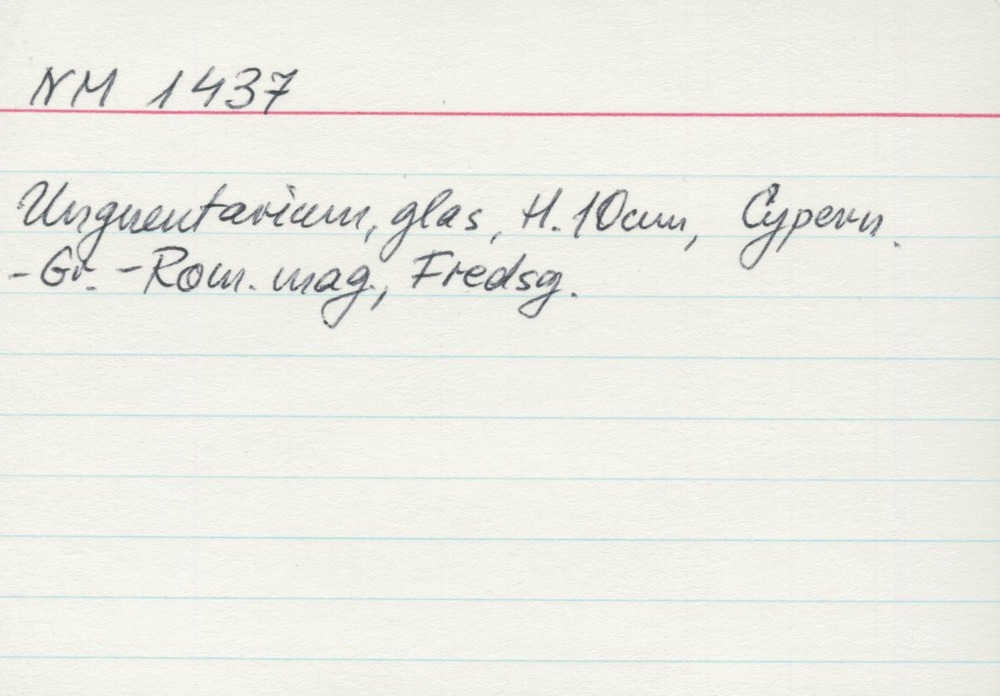 NM 1437
Unguentarium, glas, H. 10cm, Cypern.
- Gr. - Rom. mag., Fredsg.